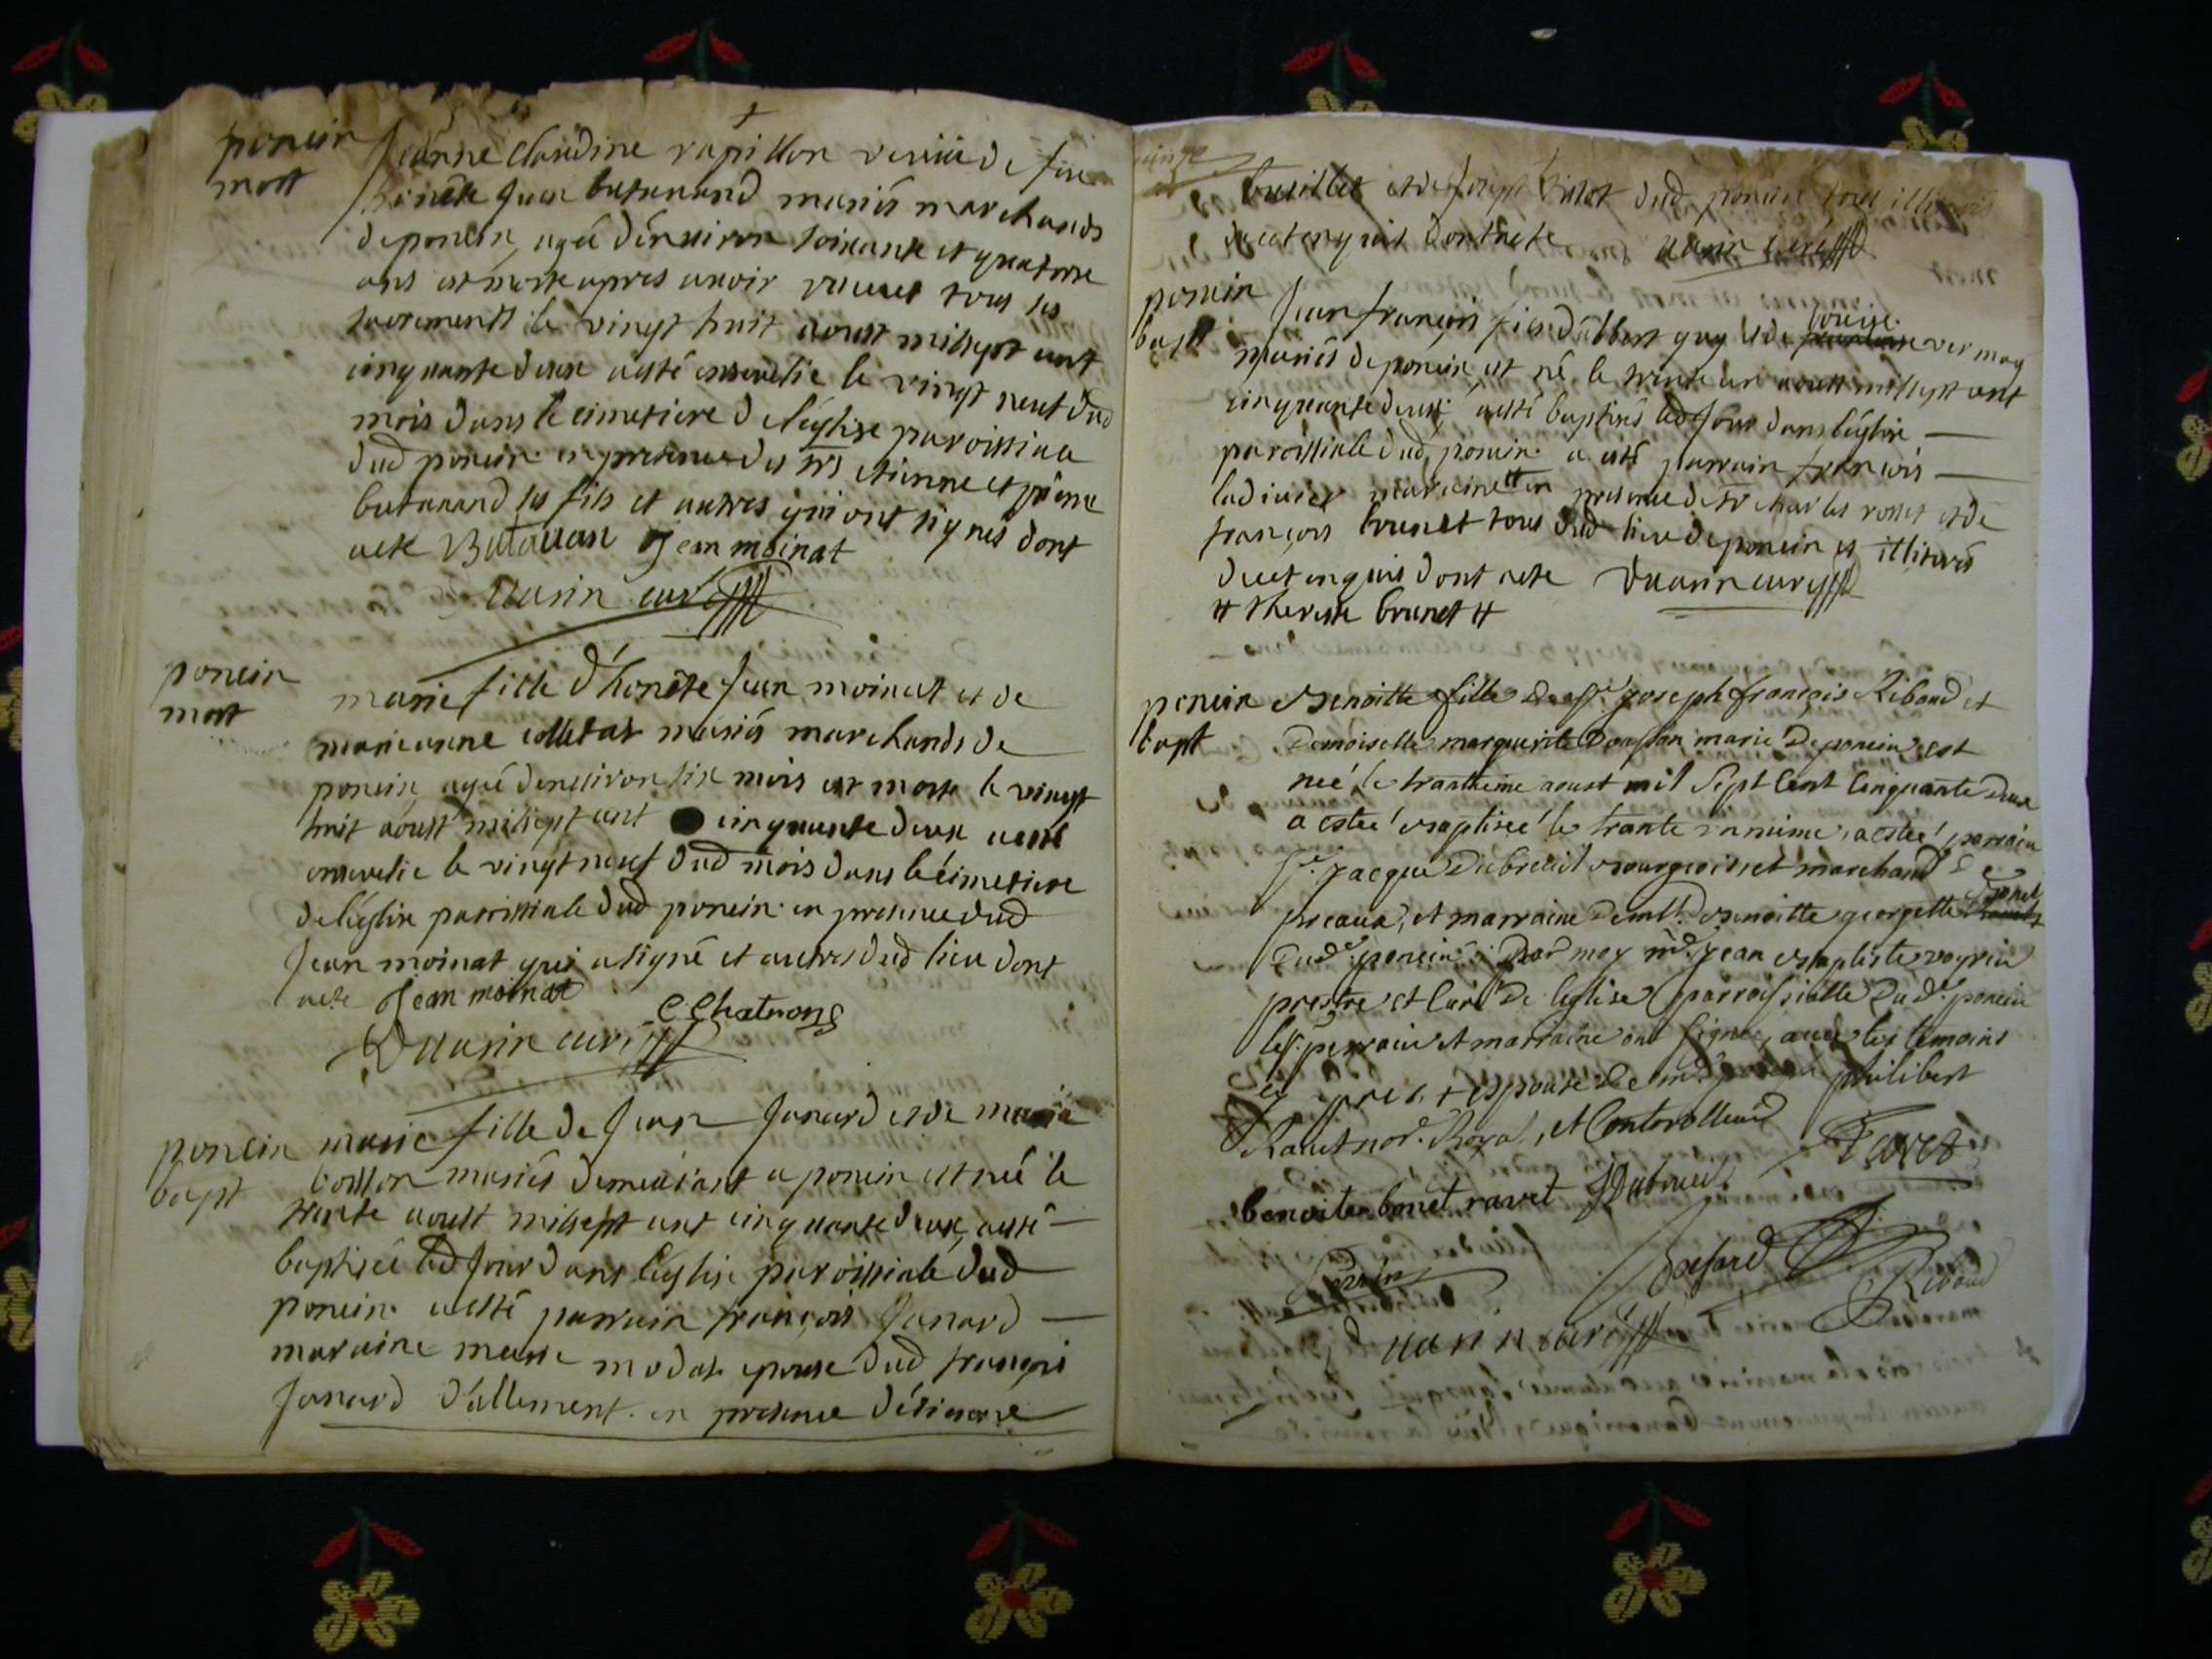 poncin
mort
Jeanne claudine rapillon veuve de feu
honête Jean butavand mariés marchands
de poncin, agée d'environ soixante et quatorze
ans est morte apres avoir reçues tous les
sacrements le vingt huit aoust mil sept cent
cinquante deux a esté ensevelie le vingt neuf dud
mois dans le cimetiere de l'église paroissiale
dud poncin en presence des srs etienne et pierre
butavand ses fils et autres qui ont signés dont
acte Butavan Jean moinat
curé
poncin
mort
marie fille d'honête Jean moinat et de
marieanne colletat mariés marchands de
poncin, agée d'environ six mois est morte le vingt
huit aoust mil sept cent cinquante deux a esté
ensevelie le vingt neuf dud mois dans le cimetiere
de l'église paroissiale dud poncin en presence dud
Jean moinat qui a signé et autres dud lieu dont
acte Jean moinat
C Chatron
curé
poncin
bapt
marie fille de Jean Janard et de marie
mariés demeurant a poncin est née le
trente aoust mil sept cent cinquante deux, a esté
baptisée led Jour dans l'église paroissiale dud
poncin a esté parrain françois Janard
maraine epouse dud françois
Janard d'allement en presence d'étienne
et de Joseph dud poncin tous illiterés
de ce enquis dont acte curé
poncin
bapt
Jean françois fils d'albert guy et de louise
mariés de poncin, est né le trente un aoust mil sept cent
cinquante deux a esté baptisés led Jour dans l'église
paroissiale dud poncin a esté parrain françois
maraine # en presence de sr charles rosset et de
françois brunet tous dud lieu de poncin et illiterés
de ce enquis dont acte curé
# therese brunet #
poncin
bapt
Benoitte fille de Sr. joseph françois Ribaud et
Demoiselle marguerite marié De poncin est
neé le trantieme aoust mil Sept Cent Cinquante Deux
a estée baptiseé le trante unieme, a estée parrain
Sr. Jacque Dubreuil bourgeois et marchand De
et marraine Demlle. benoitte georgette bonet
Dud. poncin par moy me. jean baptiste
prestre et Curé De l'eglise parroissialle Dud. poncin
les parrain et marraine ont signé, avec les temoins
+ espouse De me. philibert
Ravet nore. Royal, et Contorolleur
benoite bonet ravet JDubreuil Favre
Ribaud
curé